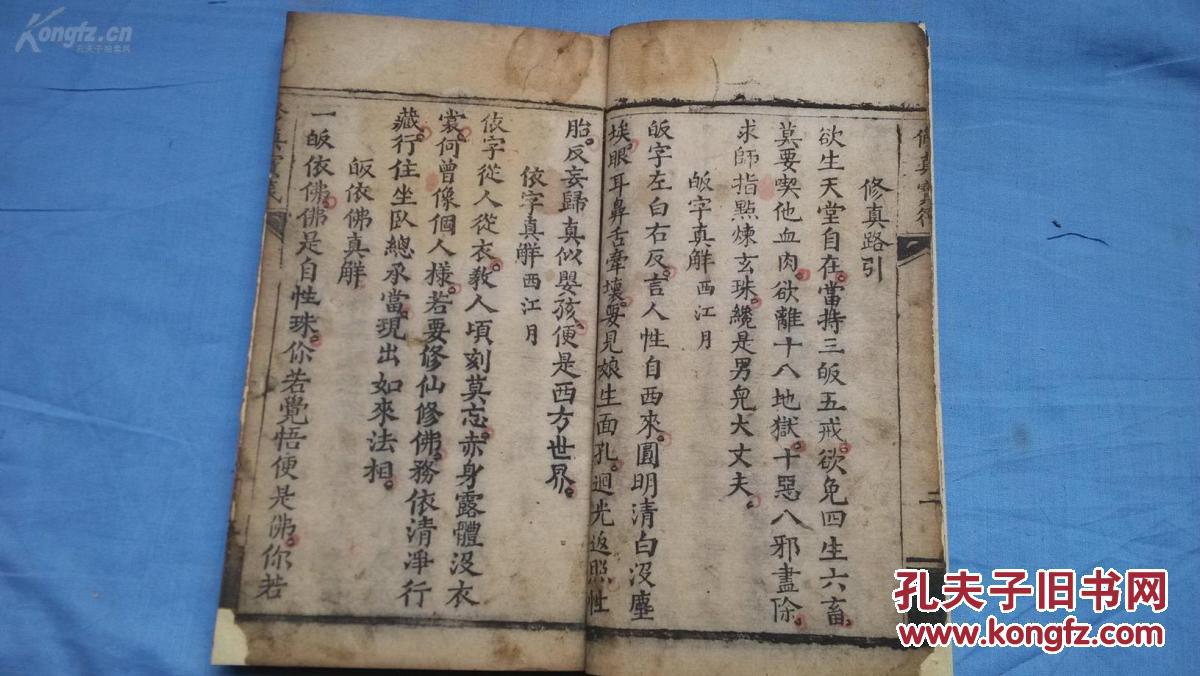 修真路引
欲生天堂自在當持三皈五戒欲免四生六畜
莫要喫他血肉欲離十八地獄十惡八邪盡除
求師指點煉玄珠纔是男兒大丈夫
皈字真觧西江月
皈字左白右反言人性自西來圓明清白沒塵
埃眼耳鼻舌牽壞要見娘生面孔迴光返照性
胎反妄歸真似嬰孩便是西方世界
依字真觧西江月
依字從人從衣教人頃刻莫忘赤身露體沒衣
裳何曾像個人樣若要修仙修佛務依清凈行
藏行住坐臥總承當現出如來法相
皈依佛真觧
一皈依佛佛是自性珠你若覺悟便是佛你若
二
Kongfz.cn
孔夫子拍卖网
孔夫子旧书网
www.kongfz.com